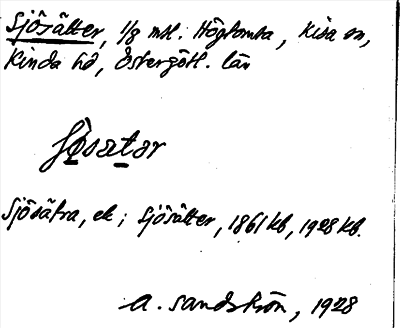 Sjösätter, 1/8 mtl. Högtomta, Kisa sn,
Kinda hd, Östergötl. län
Sjösätra, ek; Sjösätter, 1861 kb, 1928 kb.
A. Sandström, 1928